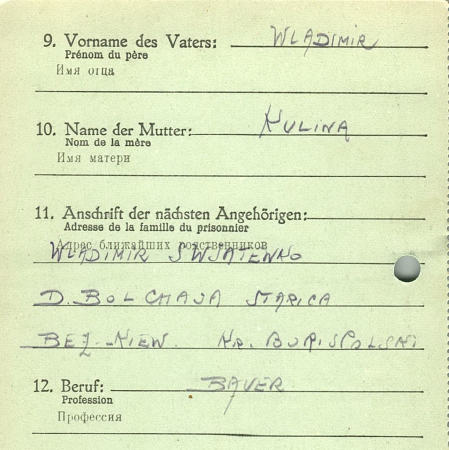 9. Vorname des Vaters: WLADIMIR
Prénom du père
Имя отца
10. Name der Mutter: KULINA
Nom de la mère
Имя матери
11. Anschrift der nächsten Angehörigen:
Adresse de la famille du prisonnier
Адрес ближайших родственников
WLADIMIR SWJATENKO
D. BOLCHAJA STARICA
BEZ. KIEW. KR. BURISPOLSKI
12. Beruf: BAUER
Profession
Профессия